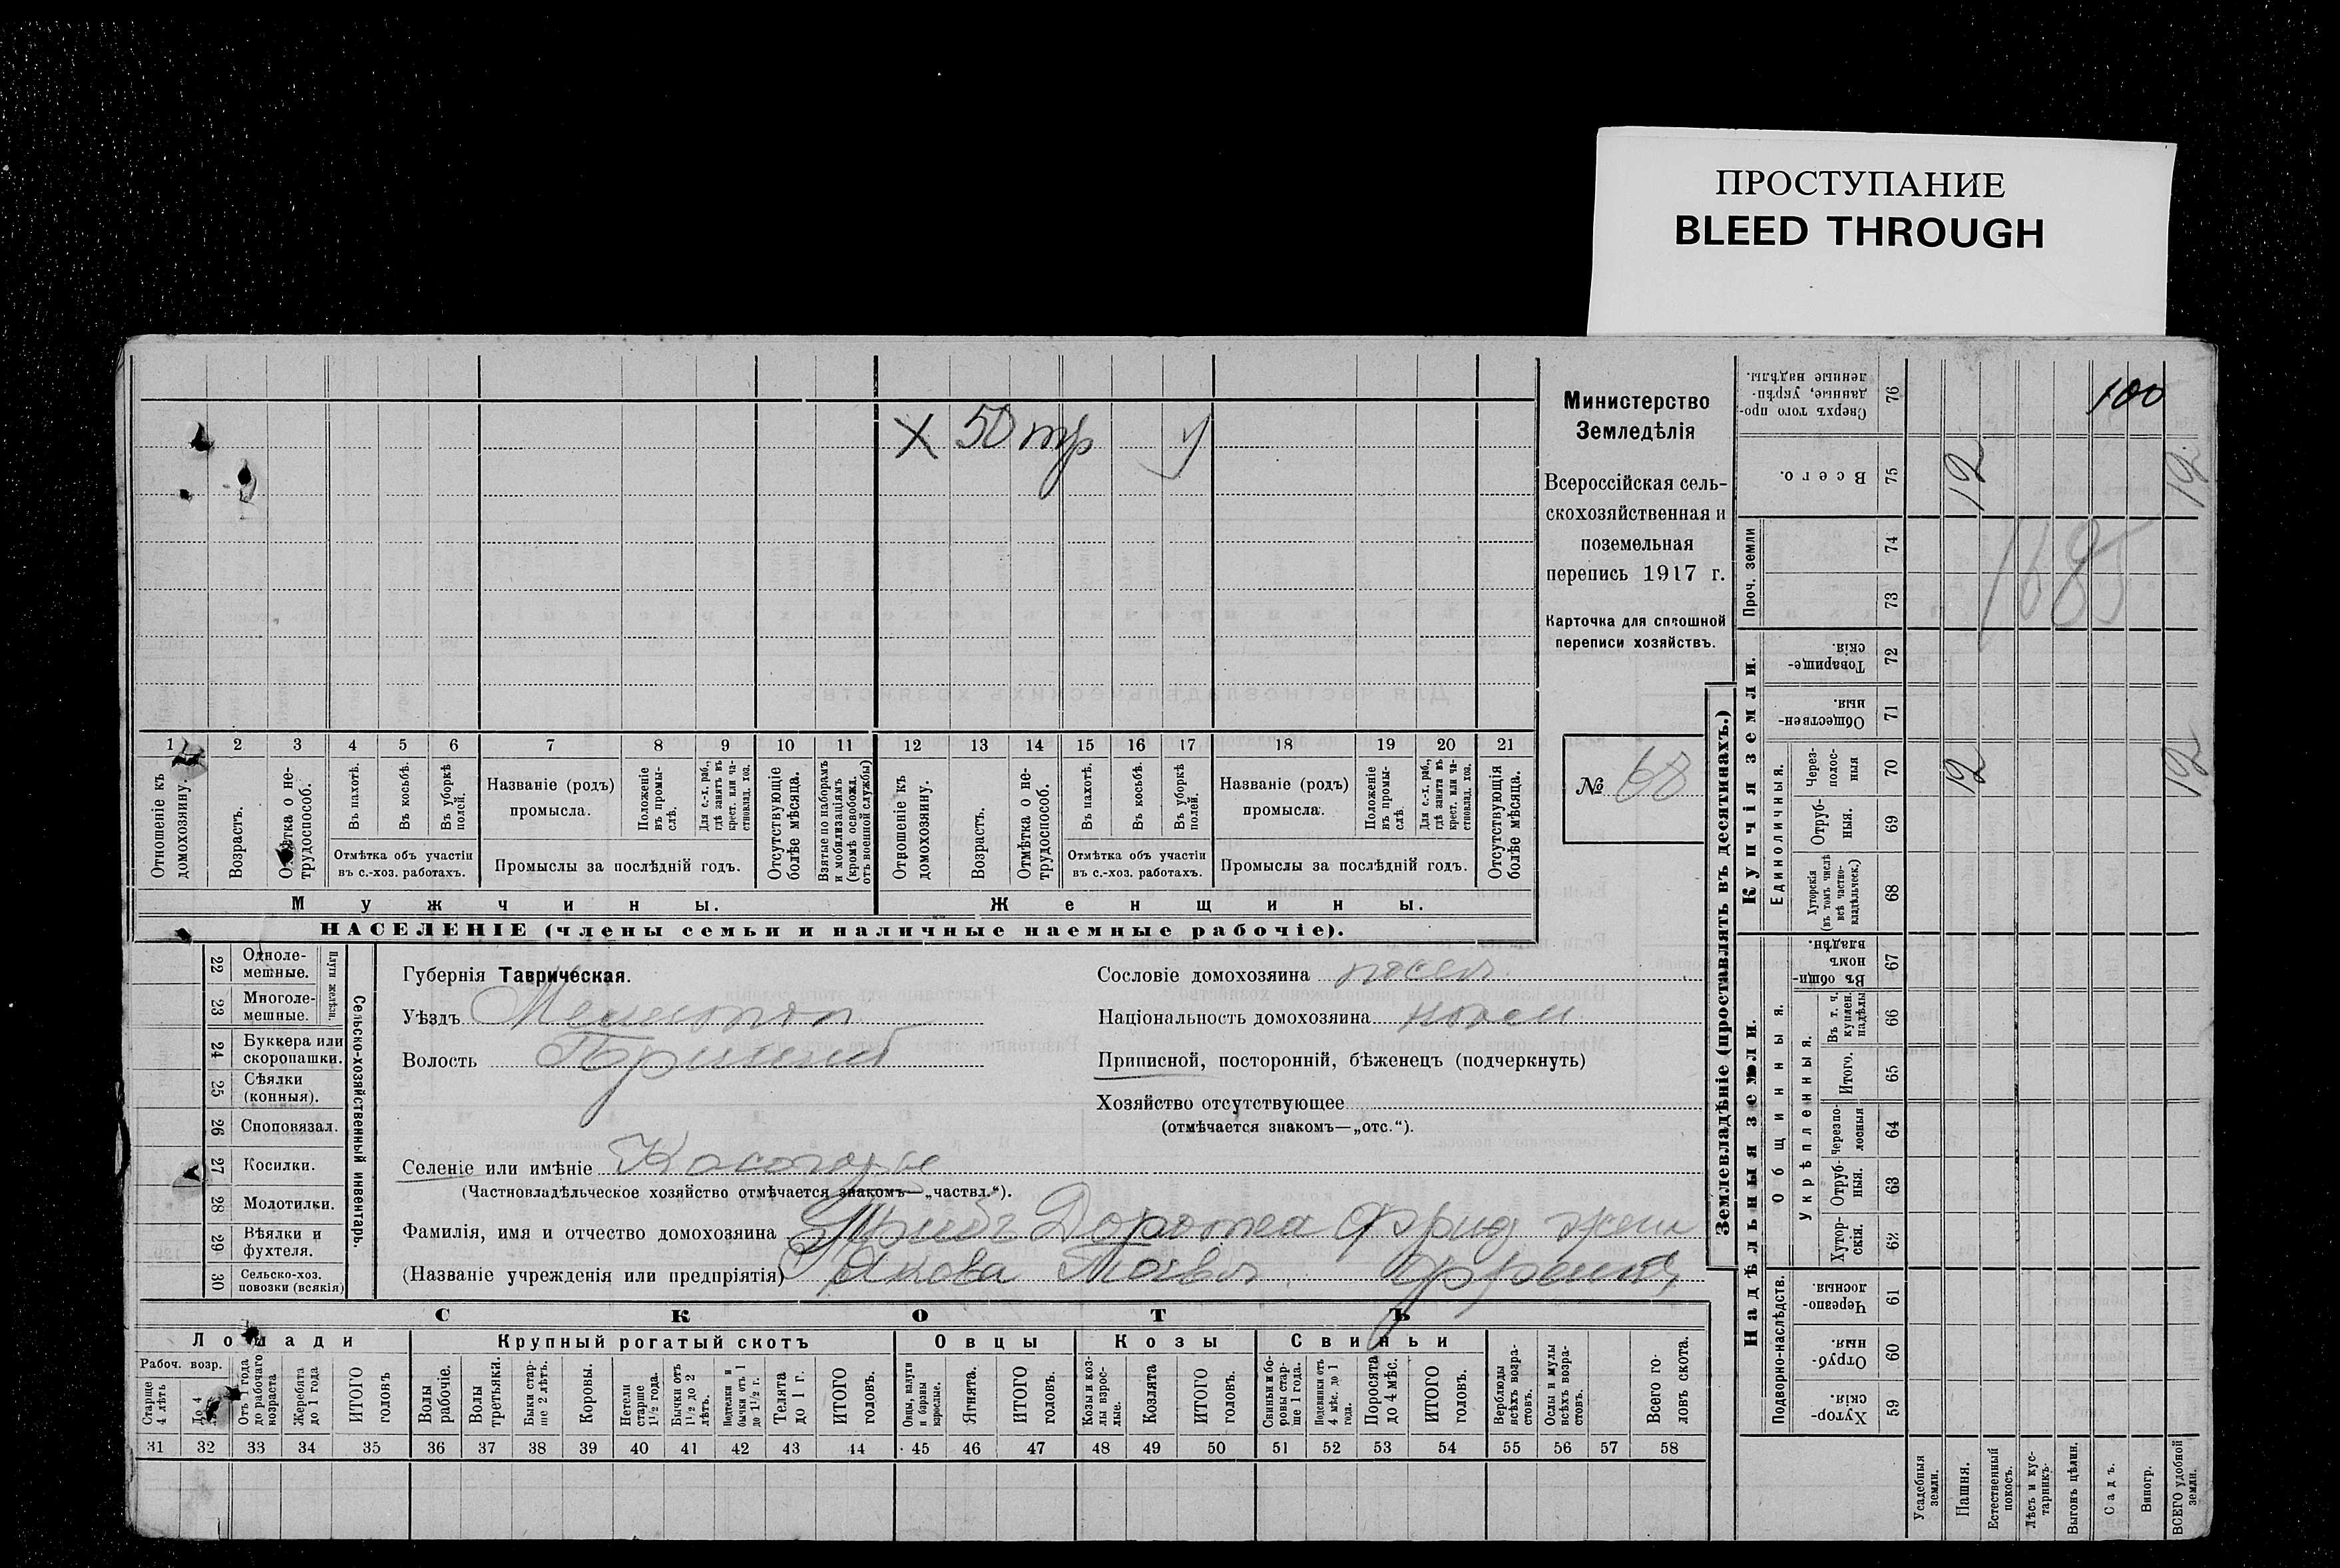 ПРОСТУПАНИЕ
BLEED THROUGH
Министерство
Земледѣлія
Всероссійская сель-
скохозяйственная и
поземельная
перепись 1917 г.
Карточка для сплошной
переписи хозяйствъ.
№ 68
X 50 тр у
1 2 3 4 5 6 7 8 9 10 11 12 13 14 15 16 17 18 19 20 21
Отношеніе къ домохозяину.
Возрастъ.
Отмѣтка о не-трудоспособ.
Въ пахотѣ.
Въ косьбѣ.
Въ уборкѣ полей.
Отмѣтка объ участіи
въ с.-хоз. работахъ.
Названіе (родъ)
промысла.
Положеніе въ промы-слѣ.
Для с.-х. раб., гдѣ занятъ въ крест. или ча-стновлад. хоз.
Промыслы за послѣдній годъ.
Отсутствующіе болѣе мѣсяца.
Взятые по наборамъ и мобилизаціямъ (кромѣ освобожд. отъ военной службы)
Отношеніе къ домохозяину.
Возрастъ.
Отмѣтка о не-трудоспособ.
Въ пахотѣ.
Въ косьбѣ.
Въ уборкѣ полей.
Отмѣтка объ участіи
въ с.-хоз. работахъ.
Названіе (родъ)
промысла.
Положеніе въ промы-слѣ.
Для с.-х. раб., гдѣ занятъ въ крест. или ча-стновлад. хоз.
Промыслы за послѣдній годъ.
Отсутствующія болѣе мѣсяца.
Мужчины.
Женщины.
НАСЕЛЕНІЕ (члены семьи и наличные наемные рабочіе).
22 Одноле-мешные.
23 Многоле-мешные.
Плуги желѣзн.
24 Буккера или скоропашки.
25 Сѣялки (конныя).
26 Сноповязал.
27 Косилки.
28 Молотилки.
29 Вѣялки и фухтеля.
30 Сельско-хоз. повозки (всякія)
Сельско-хозяйственный инвентарь.
Губернія Таврическая.
Уѣздъ
Волость
Селеніе или имѣніе
(Частновладѣльческое хозяйство отмѣчается знакомъ—„частвл.“).
Фамилія, имя и отчество домохозяина Доротеа Фрид
(Названіе учрежденія или предпріятія) Якова
Сословіе домохозяина посел.
Національность домохозяина
Приписной, посторонній, бѣженецъ (подчеркнуть)
Хозяйство отсутствующее
(отмѣчается знакомъ—„отс.“).
СКОТЪ
Лошади
Рабоч. возр.
Старше 4 лѣтъ
До 4
Отъ 1 года до рабочаго возраста
Жеребята до 1 года
ИТОГО головъ
Крупный рогатый скотъ
Волы рабочіе.
Волы третьяки.
Быки стар-ше 2 лѣтъ.
Коровы.
Нетели старше 1½ года.
Бычки отъ 1½ до 2 лѣтъ.
Подтелки и бычки отъ 1 до 1½ г.
Телята до 1 г.
ИТОГО головъ.
Овцы
Овцы, валухи и бараны взрослые.
Ягнята.
ИТОГО головъ.
Козы
Козы и коз-лы взрос-лые.
Козлята
ИТОГО головъ.
Свиньи
Свиньи и бо-ровы стар-ше 1 года.
Подсвинки отъ 4 мѣс. до 1 года.
Поросята до 4 мѣс.
ИТОГО головъ.
Верблюды всѣхъ возра-стовъ.
Ослы и мулы всѣхъ возра-стовъ.
Всего го-ловъ скота.
31 32 33 34 35 36 37 38 39 40 41 42 43 44 45 46 47 48 49 50 51 52 53 54 55 56 57 58
Землевладѣніе (проставлять въ десятинахъ.)
Купчія земли.
Надѣльныя земли.
Сверхъ того про-данные, укрѣп-ленные надѣлы. 76 100
Всего. 75 12 12
Проч. земли 74 73
1685
Товарище-скія. 72
Обществен-ныя. 71
Единоличныя.
Через-полос-ныя 70 12 12
Отруб-ныя. 69
Хуторскія (въ томъ числѣ всѣ частно-владѣльческ.) 68
Общинныя.
Въ общи-номъ владѣн. 67
Укрѣпленныя.
Въ т. ч. куплен. надѣлы 66
Итого. 65
Черезпо-лосныя 64
Отруб-ныя. 63
Хутор-скія. 62
Подворно-наслѣдств.
Черезпо-лосныя 61
Отруб-ныя. 60
Хутор-скія. 59
Усадебныя земли.
Пашня.
Естественный покосъ.
Лѣсъ и кус-тарникъ.
Выгонъ цѣлин.
Садъ.
Виногр.
ВСЕГО удобной земли.